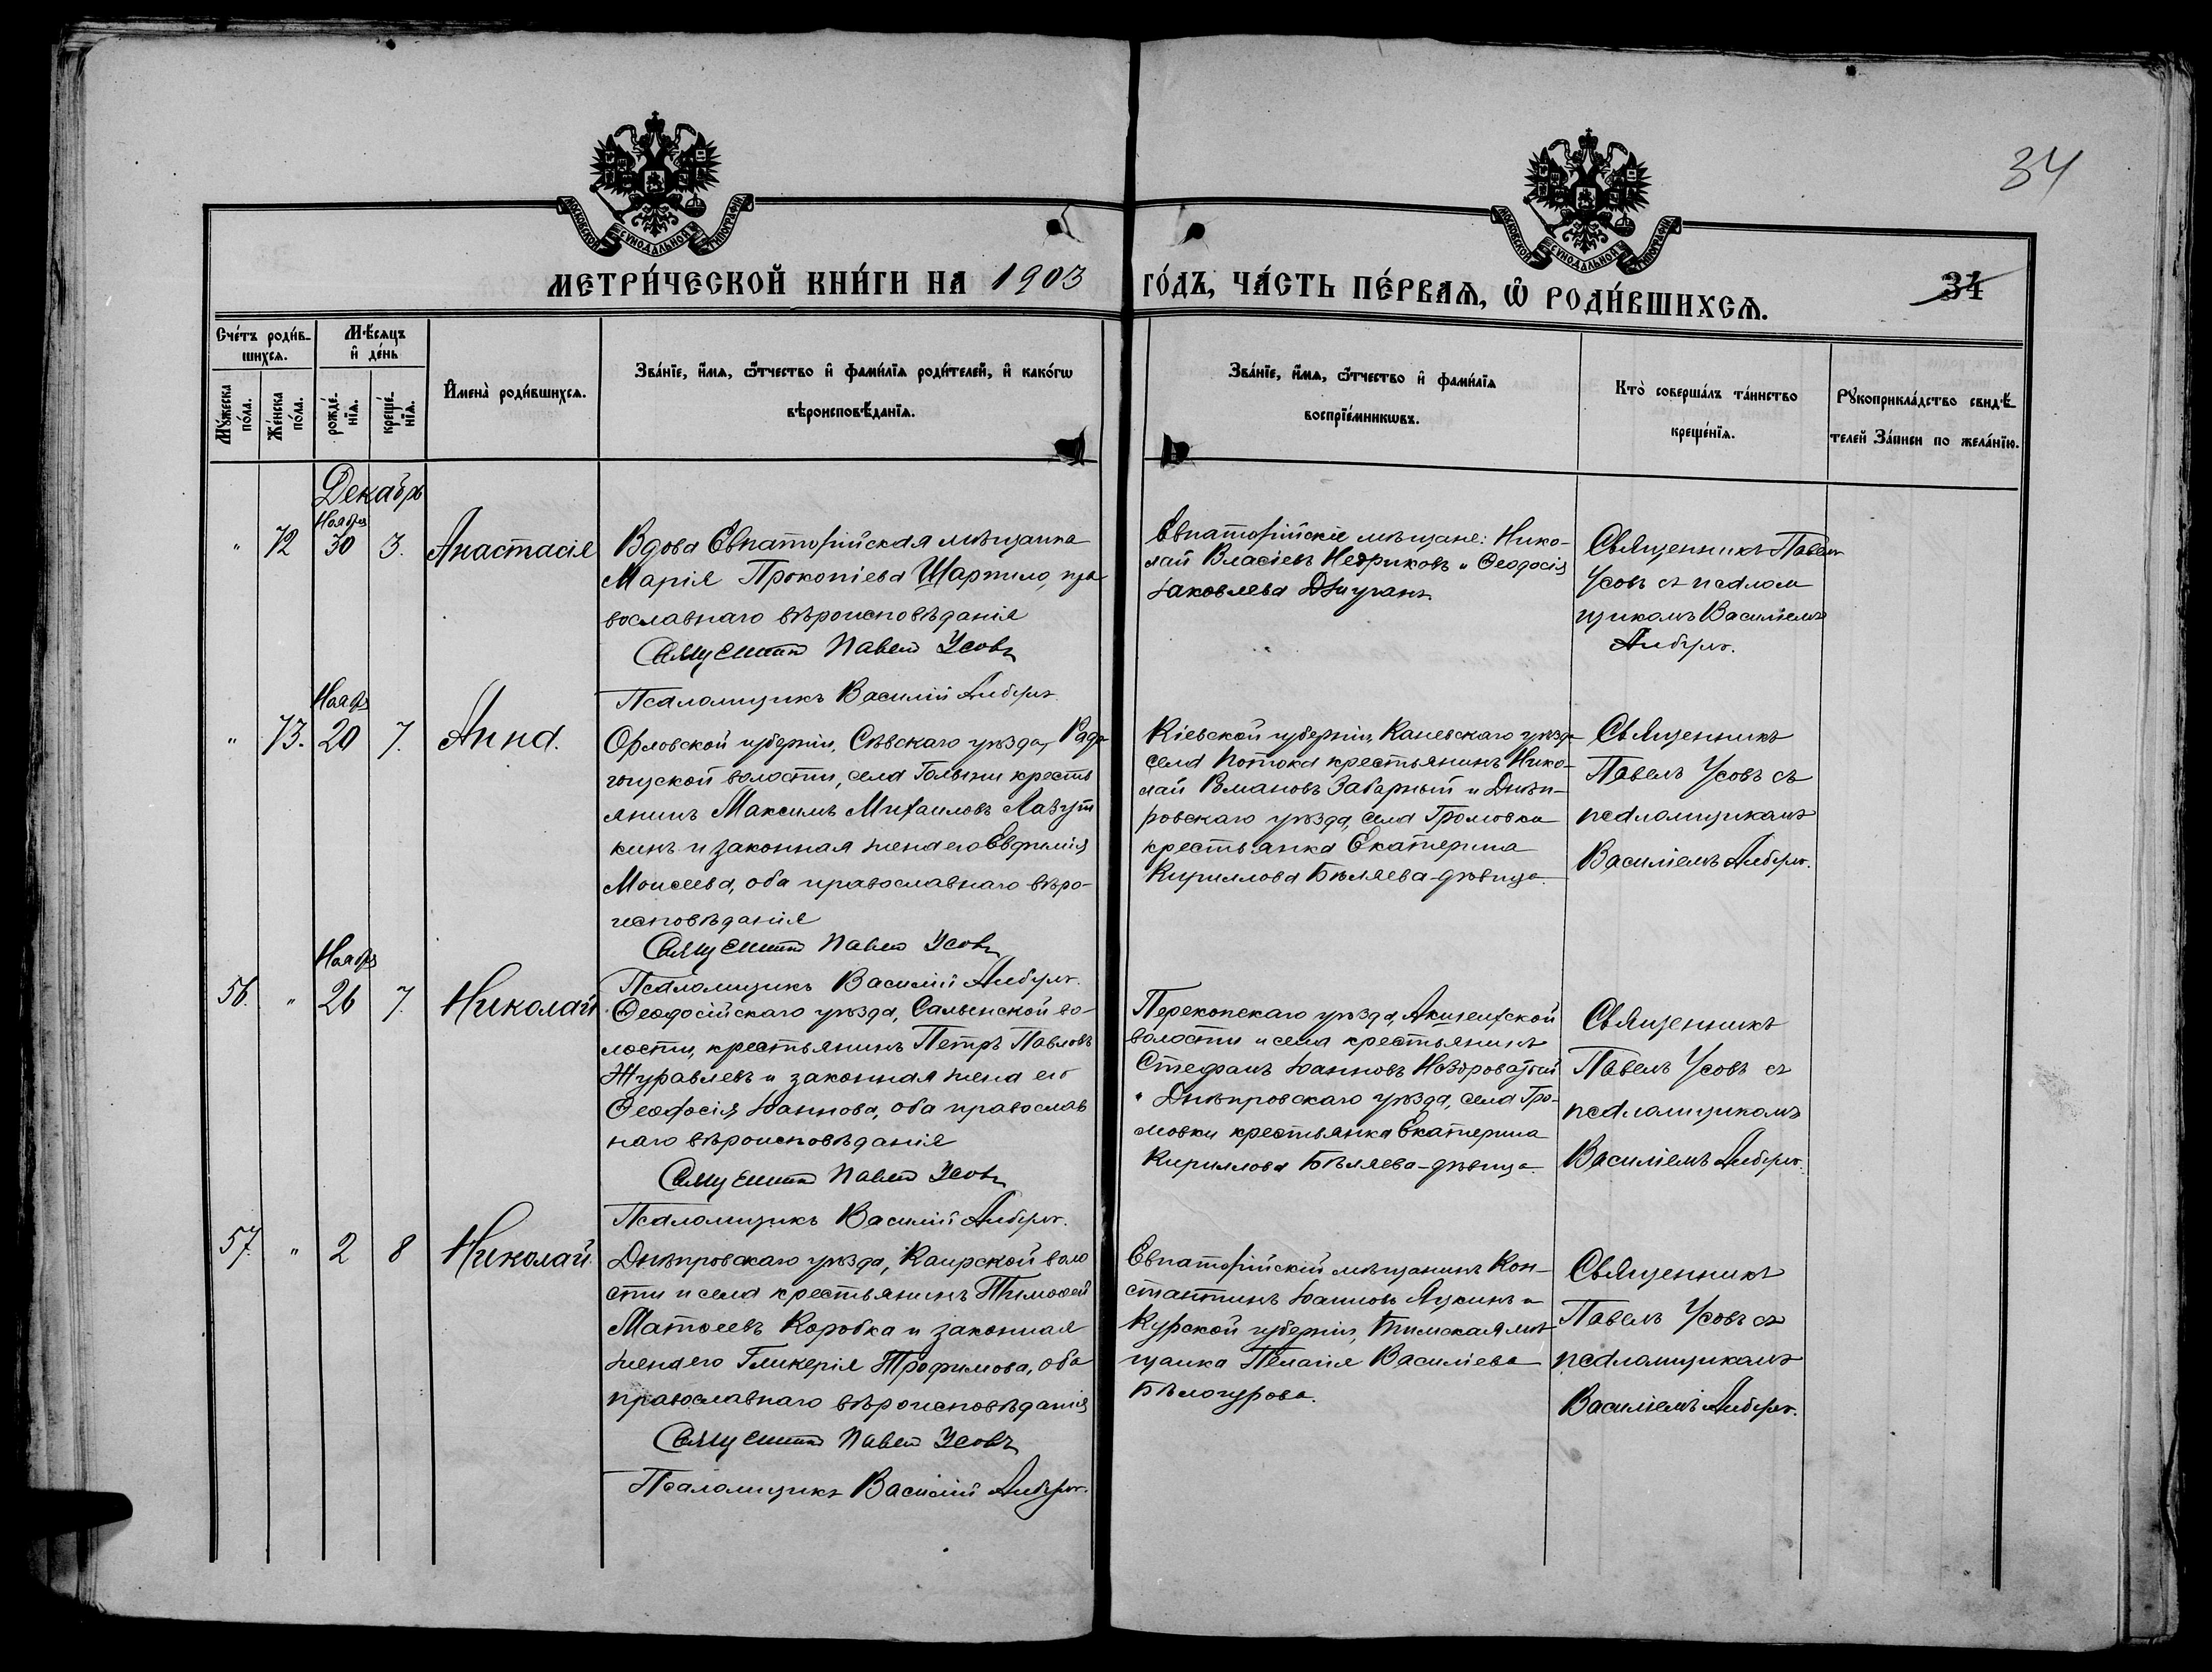 34
МОСКОВСКОЙ СѴНОДАЛЬНОЙ ТИПОГРАФІИ
МОСКОВСКОЙ СѴНОДАЛЬНОЙ ТИПОГРАФІИ
МЕТРИ́ЧЕСКОЙ КНИ́ГИ НА 1903 ГО́ДЪ, ЧА́СТЬ ПЕ́РВАѦ, Ѡ҆ РОДИ́ВШИХСѦ.
34
Сче́тъ роди́в-
шихсѧ.
Мѣ́сяцъ
и҆ де́нь
Мꙋ́жеска
по́ла.
Же́нска
по́ла.
рожде́-
нїѧ.
креще́-
нїѧ.
И҆мена̀ роди́вшихсѧ.
Зва́нїе, и҆́мѧ, ѻ҆́тчество и҆ фами́лїѧ роди́телей, и҆ како́гѡ
вѣроисповѣ́данїѧ.
Зва́нїе, и҆́мѧ, ѻ҆́тчество и҆ фами́лїѧ
воспрїе́мникѡвъ.
Кто̀ соверша́лъ та́инство
креще́нїѧ.
Рꙋкоприкла́дство свидѣ́-
телей за́писи по жела́нїю.
Декабрь
Ноября
" 72 30 3. Анастасія
Вдова Евпаторійская мѣщанка
Марія Прокопіева Шарпило, пра
вославнаго вѣроисповѣданія
Священникъ Павелъ Усовъ
Псаломщикъ Василій
Евпаторійскіе мѣщане: Нико-
лай Власіевъ и Ѳеодосія
Іаковлева
Священникъ Павелъ
Усовъ съ псалом
щикомъ Василіемъ
Ноября
" 73. 20 7. Анна.
Орловской губерніи, Сѣвскаго уѣзда, Радо
гощской волости, села крестья
янинъ Максимъ Михаиловъ Лазут
кинъ и законная жена его Евфимія
Моисеева, оба православнаго вѣро-
исповѣданія
Священникъ Павелъ Усовъ
Псаломщикъ Василій
Кіевской губерніи, Каневскаго уѣзда
села Потока крестьянинъ Нико-
лай Романовъ Забарный и Днѣп-
ровскаго уѣзда, села Громовки
крестьянка Екатерина
Кириллова Бѣляева-дѣвица.
Священникъ
Павелъ Усовъ съ
псаломщикомъ
Василіемъ
Ноября
56. " 26 7. Николай
Ѳеодосійскаго уѣзда, во-
лости, крестьянинъ Петръ Павловъ
Журавлевъ и законная жена его
Ѳеодосія Іоаннова, оба православ
наго вѣроисповѣданія
Священникъ Павелъ Усовъ
Псаломщикъ Василій
Перекопскаго уѣзда,
волости и села крестьянинъ
Стефанъ Іоанновъ
и Днѣпровскаго уѣзда, села Гро-
мовки крестьянка Екатерина
Кириллова Бѣляева-дѣвица.
Священникъ
Павелъ Усовъ съ
псаломщикомъ
Василіемъ
57. " 2 8 Николай.
Днѣпровскаго уѣзда, Каирской воло
сти и села крестьянинъ Тимоѳей
Матѳеевъ Коробка и законная
жена его Гликерія Трофимова, оба
православнаго вѣроисповѣданія
Священникъ Павелъ Усовъ
Псаломщикъ Василій
Евпаторійскій мѣщанинъ Кон-
стантинъ Іоанновъ и
Курской губерніи, Тимская мѣ-
щанка Пелагія Василіева
Бѣлогурова.
Священникъ
Павелъ Усовъ съ
псаломщикомъ
Василіемъ